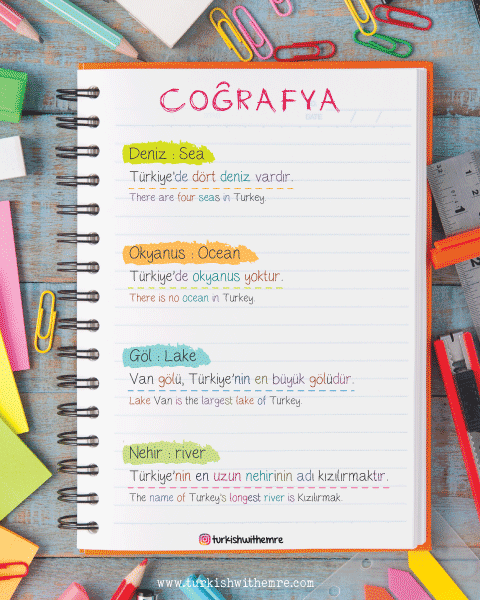 COĞRAFYA
DATE / /
Deniz : Sea
Türkiye'de dört deniz vardır.
There are four seas in Turkey.
Okyanus : Ocean
Türkiye'de okyanus yoktur.
There is no ocean in Turkey.
Göl : Lake
Van gölü, Türkiye'nin en büyük gölüdür.
Lake Van is the largest lake of Turkey.
Nehir : river
Türkiye'nin en uzun nehirinin adı kızılırmaktır.
The name of Turkey's longest river is Kızılırmak.
turkishwithemre
www.turkishwithemre.com